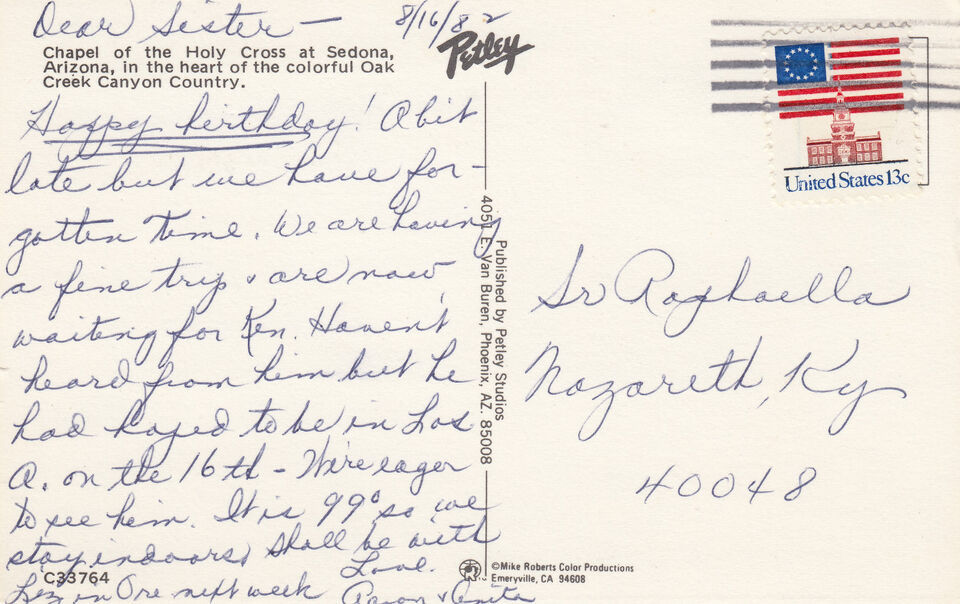 Dear Sister —
8/16/82
Petley
Chapel of the Holy Cross at Sedona,
Arizona, in the heart of the colorful Oak
Creek Canyon Country.
Happy birthday! A bit
late but we have for-
gotten time. We are having
a fine trip & are now
waiting for Ken. Haven't
heard from him but he
had hoped to be in Los
A. on the 16th - We're eager
to see him. It is 99° so we
stay indoors, shall be with
Liz in Ore next week
Love.
Aaron & Anita
C33764
Published by Petley Studios
4051 E. Van Buren, Phoenix, AZ. 85008
©Mike Roberts Color Productions
Emeryville, CA 94608
United States 13c
Sr Raphaella
Nazareth, Ky
40048